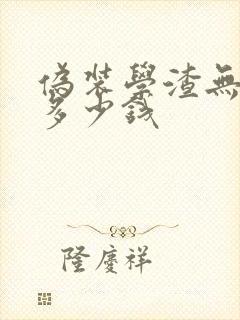 偽裝學渣無
多少錢
隆慶祥